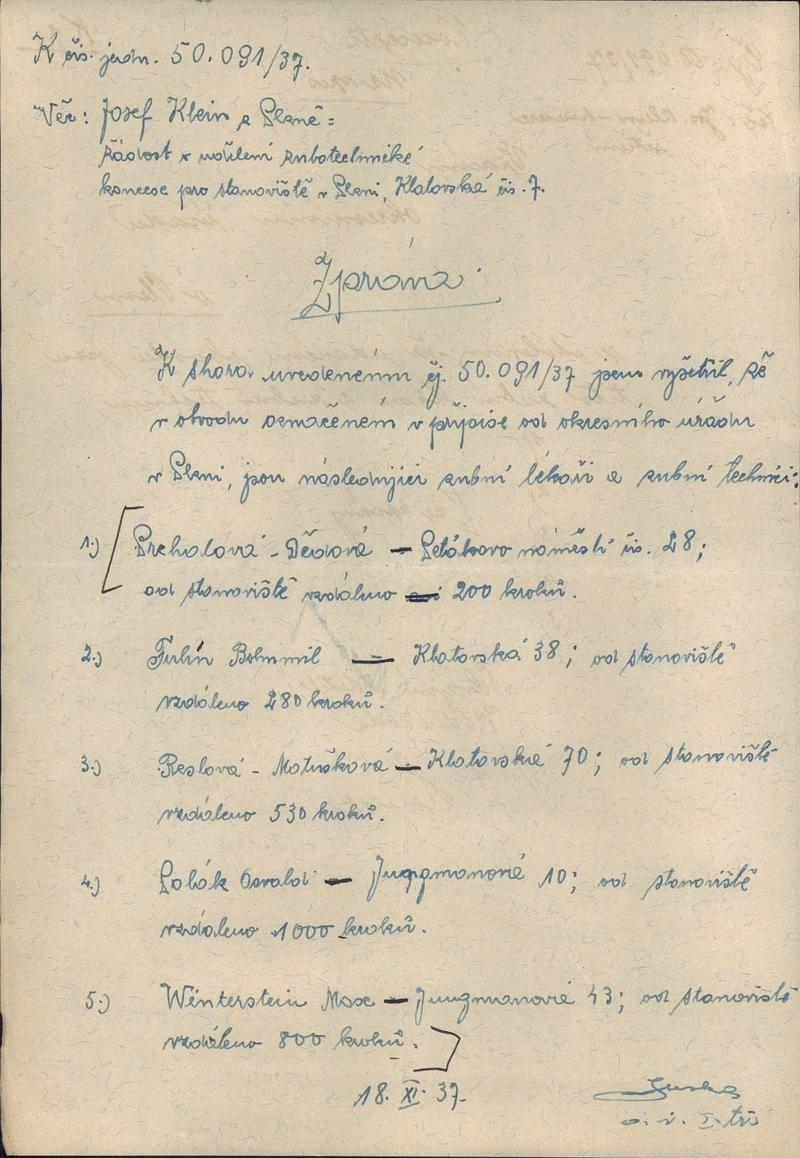 K čís. jedn. 50.091/37.
Věc: Josef Klein z Plzně =
žádost o udílení zubotechnické
koncese pro stanoviště v Plzni, Klatovská čis. 7.
Zpráva.
K shora uvedenému čj. 50.091/37 jsem vyšetřil, že
v obvodu označeném v přípise od okresního úřadu
v Plzni, jsou následující zubní lékaři a zubní technici:
1.) Prchalová - Dědová — Petákovo náměstí čis. 28;
od stanoviště vzdáleno 200 kroků.
2.) Fulín Bohumil — Klatovská 38; od stanoviště
vzdáleno 280 kroků.
3.) Reslová - Matušková — Klatovská 70; od stanoviště
vzdáleno 530 kroků.
4.) Osvald — Jungmanově 10; od stanoviště
vzdáleno 1000 kroků.
5.) Winterstein Max — Jungmanově 43; od stanoviště
vzdáleno 800 kroků.
18. XI. 37.